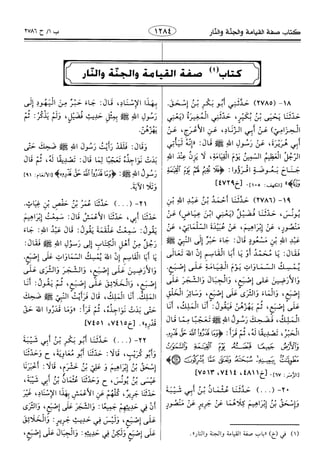 كتاب صفة القيامة والجنة والنار
١٢٨٤
ب ١/ ح ٢٧٨٦
كتاب(١) صفة القيامة والجنة والنار
١٨- (٢٧٨٥) حَدَّثَنِي أَبُو بَكْرِ بْنُ إِسْحَقَ.
حَدَّثَنَا يَحْيَى بْنُ بُكَيْرٍ. حَدَّثَنِي الْمُغِيرَةُ (يَعْنِي
الْحِزَامِيَّ) عَنْ أَبِي الزِّنَادِ، عَنِ الْأَعْرَجِ، عَنْ
أَبِي هُرَيْرَةَ، عَنْ رَسُولِ اللهِ ﷺ قَالَ: «إِنَّهُ لَيَأْتِي
الرَّجُلُ الْعَظِيمُ السَّمِينُ يَوْمَ الْقِيَامَةِ، لَا يَزِنُ عِنْدَ اللهِ
جَنَاحَ بَعُوضَةٍ. اقْرَؤُوا: ﴿فَلَا نُقِيمُ لَهُمْ يَوْمَ الْقِيَامَةِ
وَزْنًا﴾ [الكهف: ١٠٥]. [خ٤٧٢٩]
١٩- (٢٧٨٦) حَدَّثَنَا أَحْمَدُ بْنُ عَبْدِ اللهِ بْنِ
يُونُسَ. حَدَّثَنَا فُضَيْلٌ (يَعْنِي ابْنَ عِيَاضٍ) عَنْ
مَنْصُورٍ، عَنْ إِبْرَاهِيمَ، عَنْ عَبِيدَةَ السَّلْمَانِيِّ، عَنْ
عَبْدِ اللهِ بْنِ مَسْعُودٍ قَالَ: جَاءَ حَبْرٌ إِلَى النَّبِيِّ ﷺ
فَقَالَ: يَا مُحَمَّدُ أَوْ يَا أَبَا الْقَاسِمِ إِنَّ اللهَ تَعَالَى
يُمْسِكُ السَّمَاوَاتِ يَوْمَ الْقِيَامَةِ عَلَى إِصْبَعٍ.
وَالْأَرَضِينَ عَلَى إِصْبَعٍ، وَالْجِبَالَ وَالشَّجَرَ عَلَى
إِصْبَعٍ، وَالْمَاءَ وَالثَّرَى عَلَى إِصْبَعٍ، وَسَائِرَ الْخَلْقِ
عَلَى إِصْبَعٍ، ثُمَّ يَهُزُّهُنَّ فَيَقُولُ: أَنَا الْمَلِكُ، أَنَا
الْمَلِكُ. فَضَحِكَ رَسُولُ اللهِ ﷺ تَعَجُّبًا مِمَّا قَالَ
الْحَبْرُ، تَصْدِيقًا لَهُ، ثُمَّ قَرَأَ: ﴿وَمَا قَدَرُوا اللهَ حَقَّ قَدْرِهِ
وَالْأَرْضُ جَمِيعًا قَبْضَتُهُ يَوْمَ الْقِيَامَةِ وَالسَّمَاوَاتُ
مَطْوِيَّاتٌ بِيَمِينِهِ سُبْحَانَهُ وَتَعَالَى عَمَّا يُشْرِكُونَ﴾
[الزمر: ٦٧]. [خ٤٨١١، ٧٤١٤، ٧٥١٣]
٢٠- (...) حَدَّثَنَا عُثْمَانُ بْنُ أَبِي شَيْبَةَ
وَإِسْحَقُ بْنُ إِبْرَاهِيمَ كِلَاهُمَا عَنْ جَرِيرٍ عَنْ مَنْصُورٍ
بِهَذَا الْإِسْنَادِ، قَالَ: جَاءَ حَبْرٌ مِنَ الْيَهُودِ إِلَى
رَسُولِ اللهِ ﷺ بِمِثْلِ حَدِيثِ فُضَيْلٍ، وَلَمْ يَذْكُرْ: ثُمَّ
يَهُزُّهُنَّ.
وَقَالَ: فَلَقَدْ رَأَيْتُ رَسُولَ اللهِ ﷺ ضَحِكَ حَتَّى
بَدَتْ نَوَاجِذُهُ تَعَجُّبًا لِمَا قَالَ: تَصْدِيقًا لَهُ، ثُمَّ قَالَ
رَسُولُ اللهِ ﷺ: ﴿وَمَا قَدَرُوا اللهَ حَقَّ قَدْرِهِ﴾ [الأنعام: ٩١]
وَتَلَا الْآيَةَ.
٢١- (...) حَدَّثَنَا عُمَرُ بْنُ حَفْصِ بْنِ غِيَاثٍ.
حَدَّثَنَا أَبِي، حَدَّثَنَا الْأَعْمَشُ قَالَ: سَمِعْتُ إِبْرَاهِيمَ
يَقُولُ: سَمِعْتُ عَلْقَمَةَ يَقُولُ: قَالَ عَبْدُ اللهِ: جَاءَ
رَجُلٌ مِنْ أَهْلِ الْكِتَابِ إِلَى رَسُولِ اللهِ ﷺ فَقَالَ:
يَا أَبَا الْقَاسِمِ إِنَّ اللهَ يُمْسِكُ السَّمَاوَاتِ عَلَى إِصْبَعٍ،
وَالْأَرَضِينَ عَلَى إِصْبَعٍ، وَالشَّجَرَ وَالثَّرَى عَلَى
إِصْبَعٍ، وَالْخَلَائِقَ عَلَى إِصْبَعٍ، ثُمَّ يَقُولُ: أَنَا
الْمَلِكُ، أَنَا الْمَلِكُ، قَالَ فَرَأَيْتُ النَّبِيَّ ﷺ ضَحِكَ
حَتَّى بَدَتْ نَوَاجِذُهُ، ثُمَّ قَرَأَ: ﴿وَمَا قَدَرُوا اللهَ حَقَّ
قَدْرِهِ﴾. [خ٧٤١٥، ٧٤٥١]
٢٢- (...) حَدَّثَنَا أَبُو بَكْرِ بْنُ أَبِي شَيْبَةَ
وَأَبُو كُرَيْبٍ، قَالَا: حَدَّثَنَا أَبُو مُعَاوِيَةَ، ح وَحَدَّثَنَا
إِسْحَقُ بْنُ إِبْرَاهِيمَ وَ عَلِيُّ بْنُ خَشْرَمٍ، قَالَا: أَخْبَرَنَا
عِيسَى بْنُ يُونُسَ، ح وَحَدَّثَنَا عُثْمَانُ بْنُ أَبِي شَيْبَةَ،
حَدَّثَنَا جَرِيرٌ، كُلُّهُمْ عَنِ الْأَعْمَشِ بِهَذَا الْإِسْنَادِ، غَيْرَ
أَنَّ فِي حَدِيثِهِمْ جَمِيعًا: وَالشَّجَرَ عَلَى إِصْبَعٍ، وَالثَّرَى
عَلَى إِصْبَعٍ، وَلَيْسَ فِي حَدِيثِ جَرِيرٍ: وَالْخَلَائِقَ
عَلَى إِصْبَعٍ وَلَكِنْ فِي حَدِيثِهِ: وَالْجِبَالَ عَلَى إِصْبَعٍ،
(١) في (خ) «باب صفة القيامة والجنة والنار».